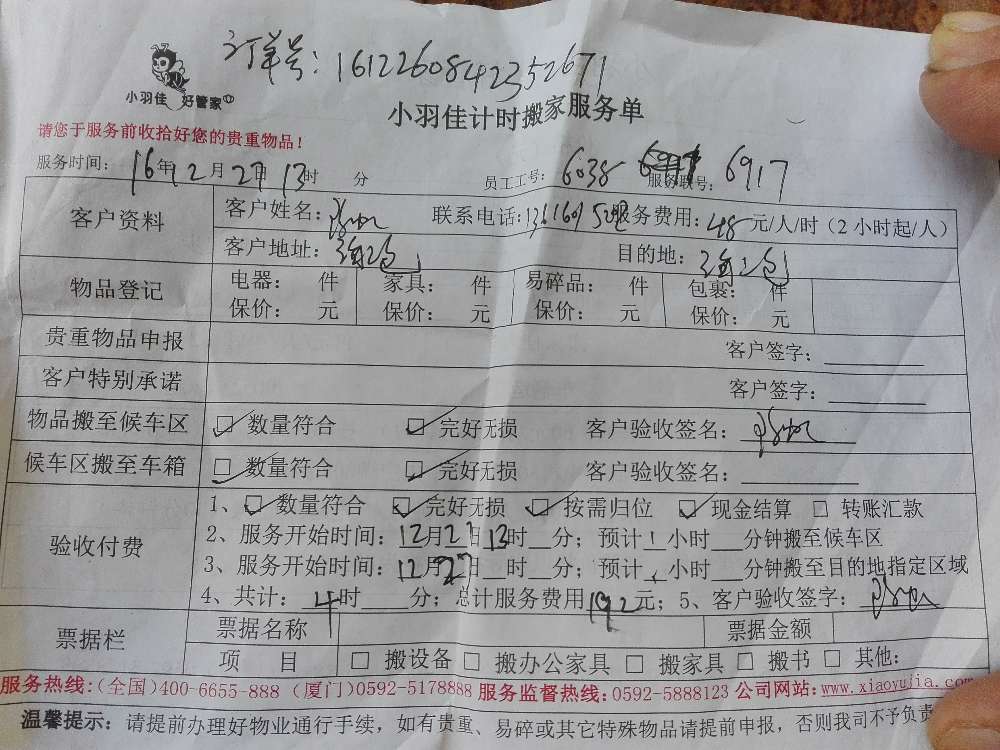 订单号：1612260842352671
小羽佳 好管家
小羽佳计时搬家服务单
请您于服务前收拾好您的贵重物品！
服务时间：16年12月27日13时 分 员工工号：6038 服务联号：6917
客户资料 客户姓名： 联系电话： 服务费用：48元/人/时（2小时起/人）
客户地址： 目的地：
物品登记 电器： 件 家具： 件 易碎品： 件 包裹： 件
保价： 元 保价： 元 保价： 元 保价： 元
贵重物品申报 客户签字：
客户特别承诺 客户签字：
物品搬至候车区 □数量符合 □完好无损 客户验收签名：
候车区搬至车箱 □数量符合 □完好无损 客户验收签名：
验收付费 1、□数量符合 □完好无损 □按需归位 □现金结算 □转账汇款
2、服务开始时间：12月27日13时 分；预计1小时 分钟搬至候车区
3、服务开始时间：12月27日 时 分；预计 小时 分钟搬至目的地指定区域
4、共计：4时 分；总计服务费用192元；5、客户验收签字：
票据栏 票据名称 票据金额
项 目 □搬设备 □搬办公家具 □搬家具 □搬书 □其他：
服务热线：(全国)400-6655-888 (厦门)0592-5178888 服务监督热线：0592-5888123 公司网站：www.xiaoyujia.com
温馨提示：请提前办理好物业通行手续，如有贵重、易碎或其它特殊物品请提前申报，否则我司不予负责